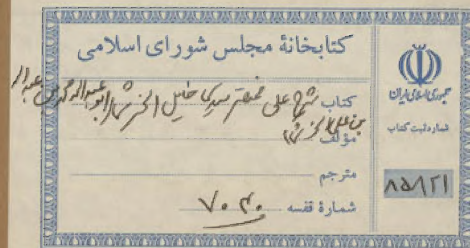 کتابخانهٔ مجلس شورای اسلامی
جمهوری اسلامی ایران
شماره ثبت کتاب
۸۵۸۲۱
کتاب شرح علی مختصر سیدی خلیل الخرشی ابو عبدالله محمد بن عبدالله
بن علی الخرشی
مؤلف
مترجم
شمارهٔ قفسه ۷۰۴۰